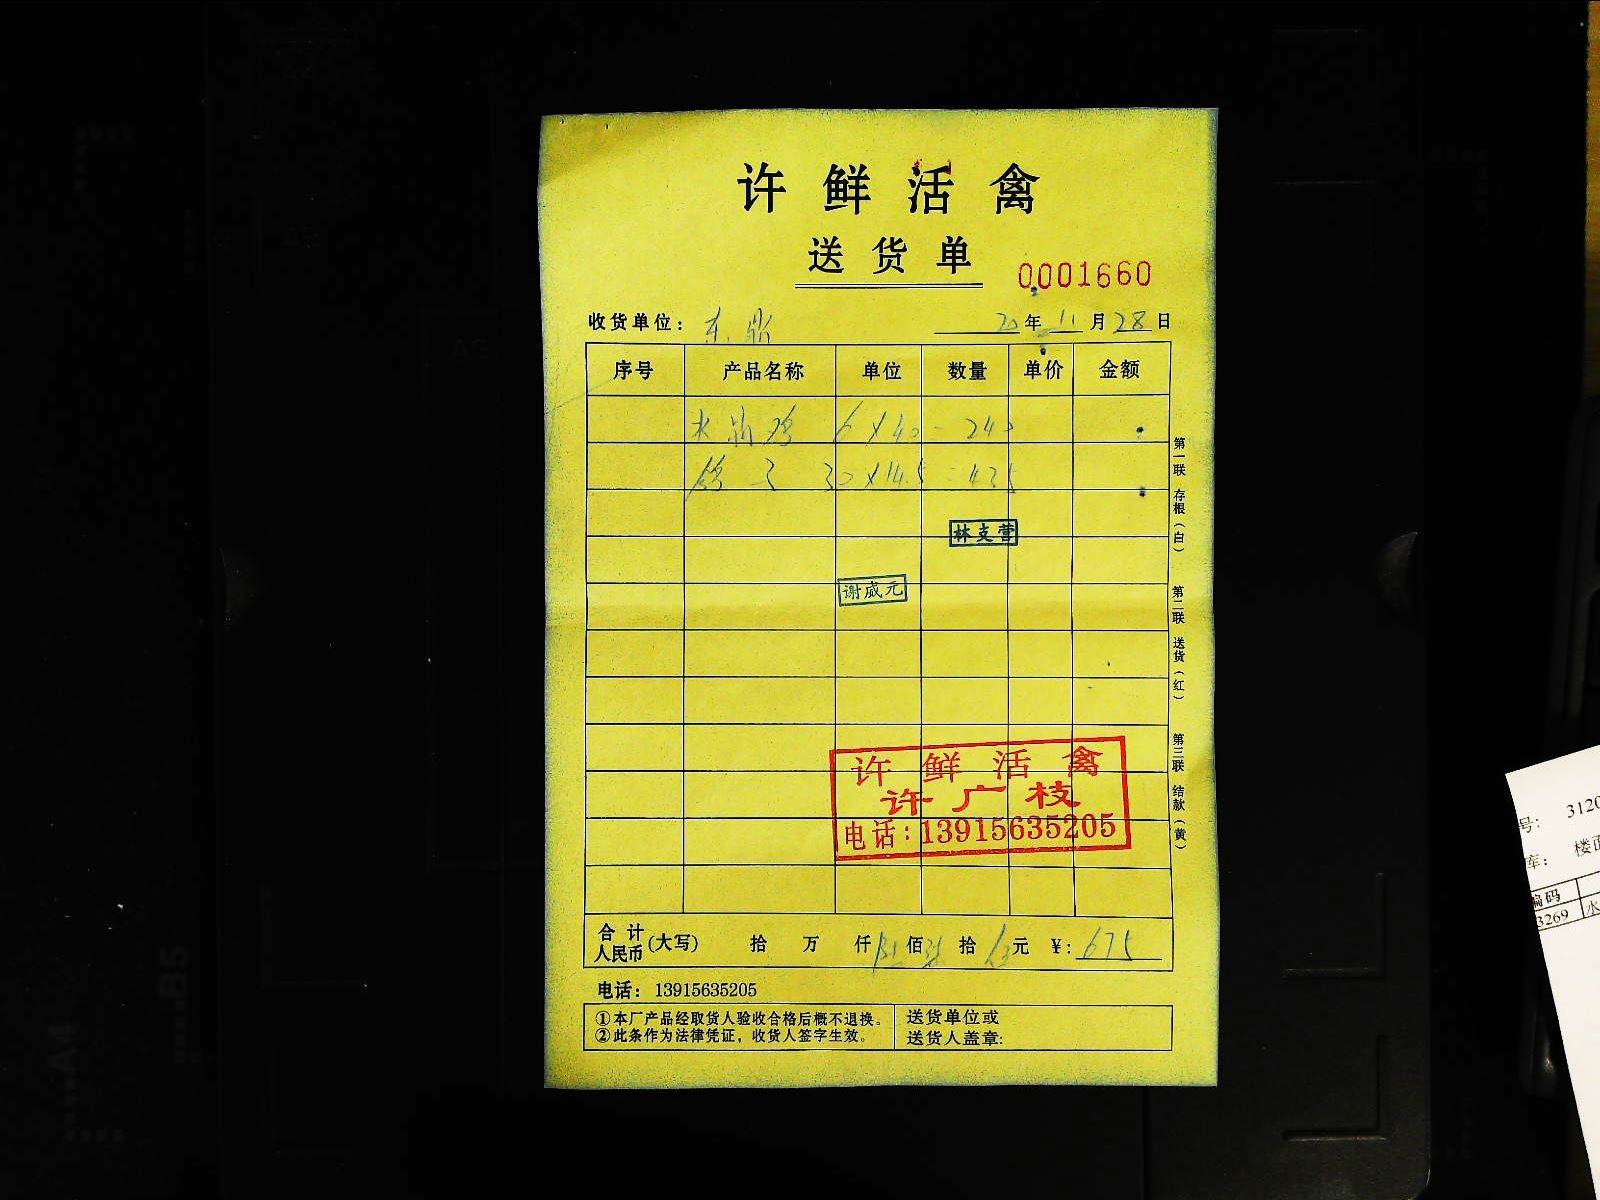 许鲜活禽
送货单
0001660
收货单位： 东 20年11月28日
序号 产品名称 单位 数量 单价 金额
水 鸡 6×40=240
鸽子 30×14.5=435
林支营
谢威元
许鲜活禽
许广枝
电话：13915635205
合计人民币(大写) 拾 万 仟 陆佰柒拾伍元 ￥：675
电话：13915635205
①本厂产品经取货人验收合格后概不退换。
②此条作为法律凭证，收货人签字生效。
送货单位或
送货人盖章：
第一联 存根（白）
第二联 送货（红）
第三联 结款（黄）
号： 3120
库： 楼面
编码
3269 水
B5
A4